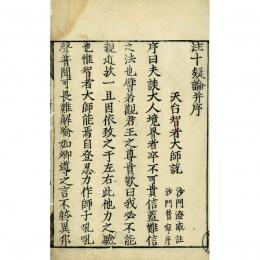 注十疑論并序
天台智者大師說
沙門澄彧註
沙門 序
序曰夫談大人境界者卒不可貴信蓋難信
之法也譬若觀君王之尊貴歎曰我必不能
親近故一旦因依致之于左右此他力之驗
也惟智者大師能焉自登忍力作師子吼
聲普聞可畏難解喻如鄉導之言不於異邪